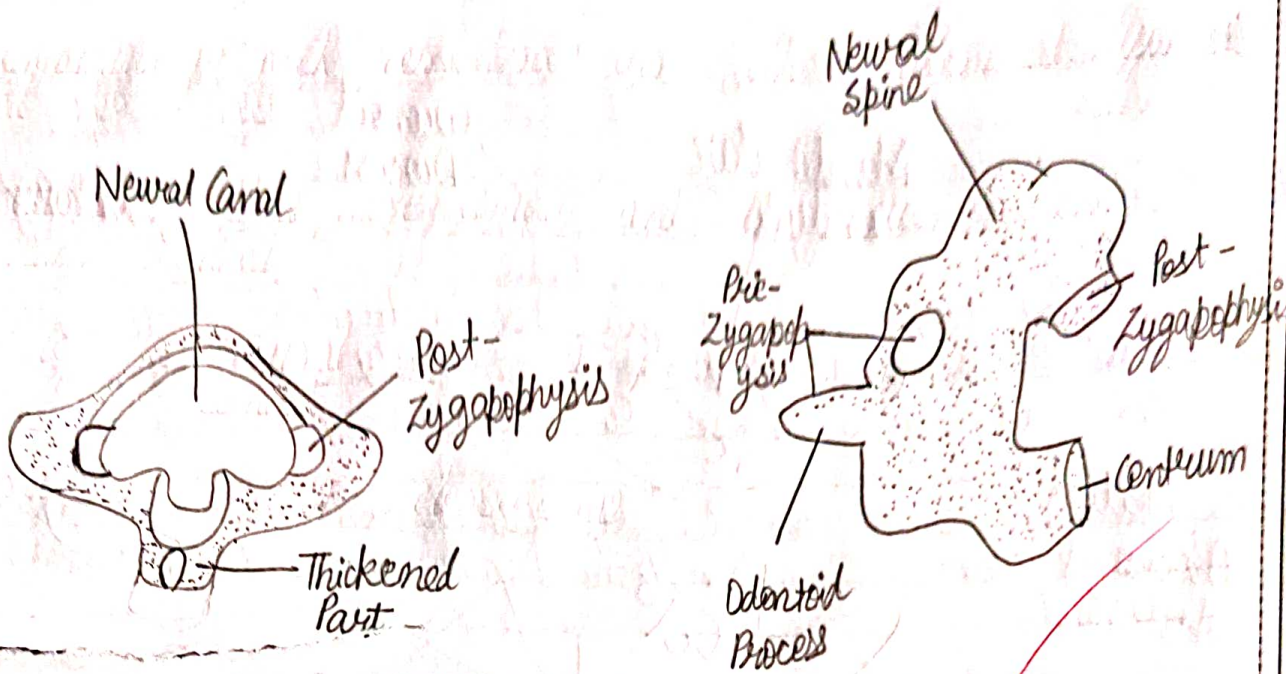 Neural Canal
Post-
Zygapophysis
Thickened
Part
Neural
Spine
Pre-
Zygapop
ysis
Post-
Zygapophysi
Centrum
Odontoid
Process